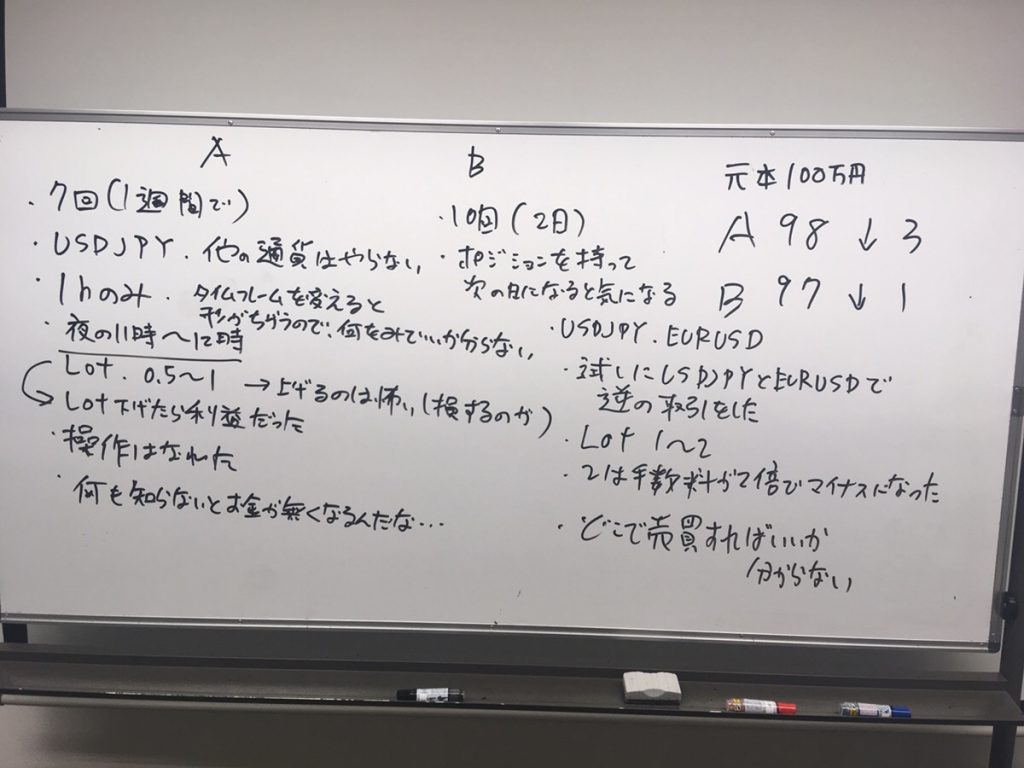 A
・7回(1週間で)
・USDJPY.他の通貨はやらない
・1hのみ.タイムフレームを変えると
形がちがうので、何をみていいか分らない
・夜の11時〜12時
Lot. 0.5〜1 →上げるのは怖い(損するのが)
Lot下げたら利益だった
・操作はなれた
・何も知らないとお金が無くなるんだな…
B
・10回(2日)
・ポジションを持って
次の日になると気になる
・USDJPY.EURUSD
・試しにUSDJPYとEURUSDで
逆の取引をした
・Lot 1〜2
・2は手数料が2倍でマイナスになった
・どこで売買すればいいか
分からない
元本100万円
A 98 ↓ 3
B 97 ↓ 1